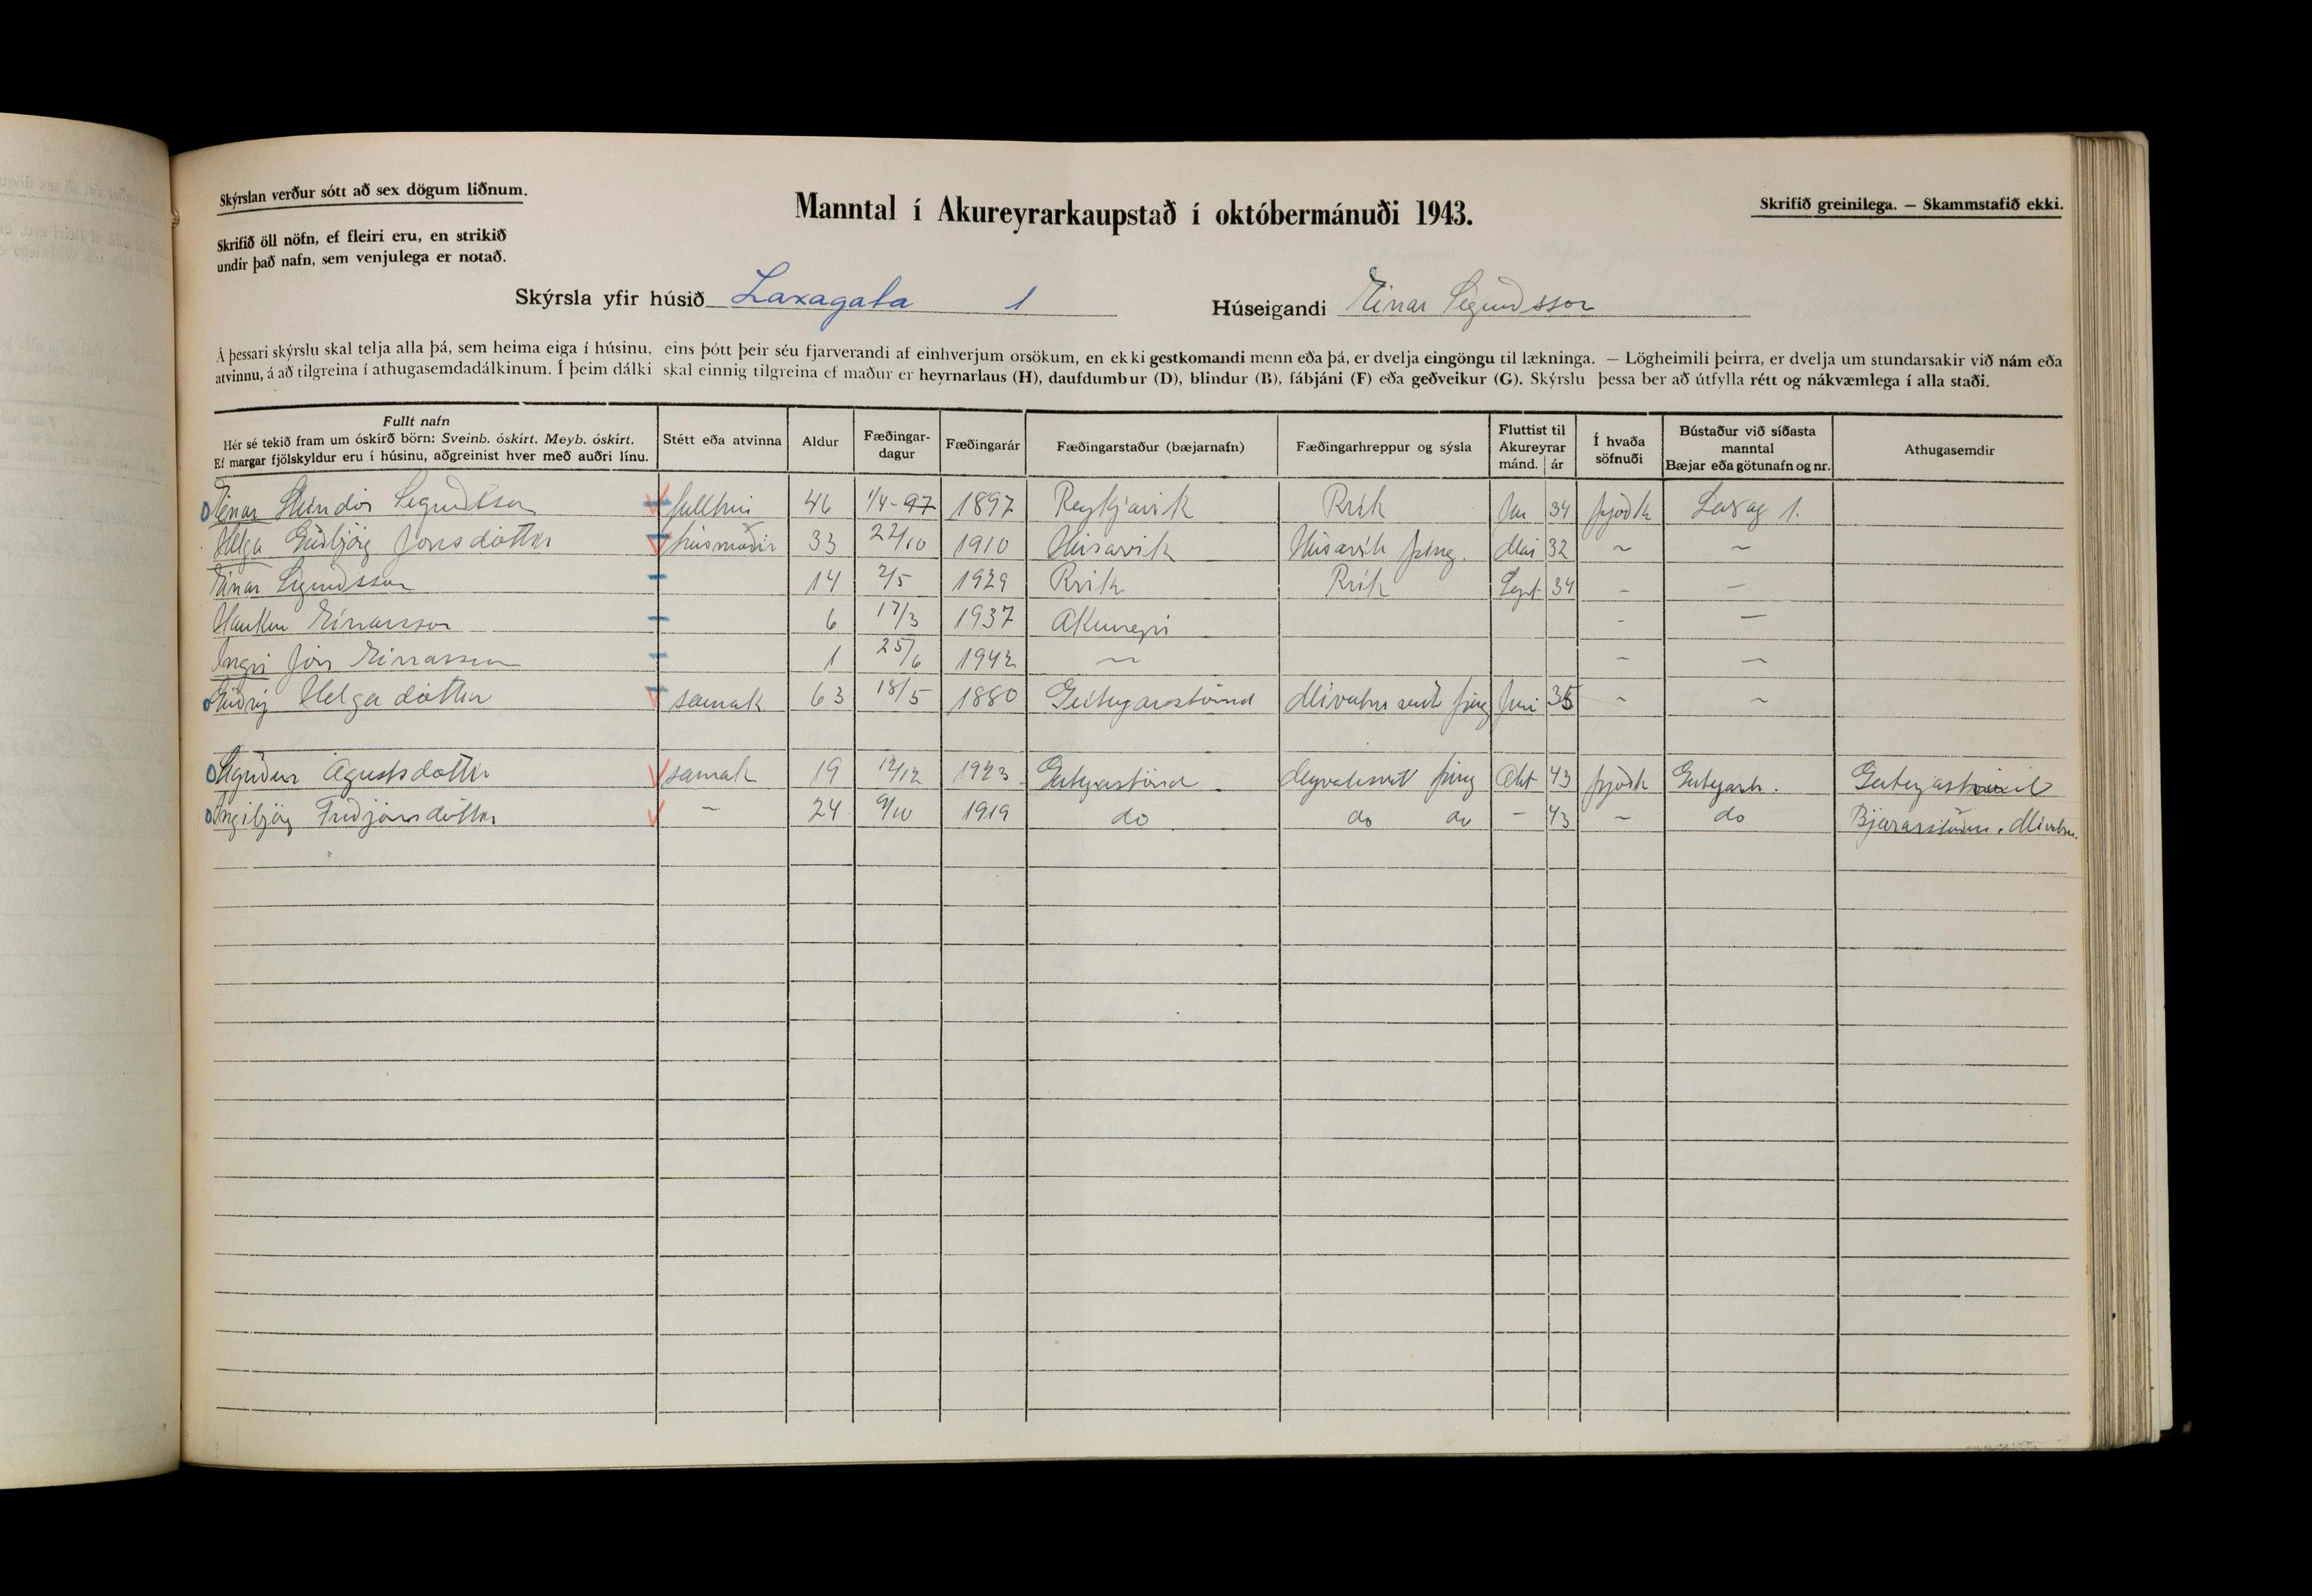 Skýrslan verður sótt að sex dögum liðnum.
Manntal í Akureyrarkaupstað í októbermánuði 1943.
Skrifið greinilega. — Skammstafið ekki.
Skrifið öll nöfn, ef fleiri eru, en strikið
undir það nafn, sem venjulega er notað.
Skýrsla yfir húsið Laxagata 1 Húseigandi Einar Sigurdsson
Á þessari skýrslu skal telja alla þá, sem heima eiga í húsinu, eins þótt þeir séu fjarverandi af einhverjum orsökum, en ekki gestkomandi menn eða þá, er dvelja eingöngu til lækninga. — Lögheimili þeirra, er dvelja um stundarsakir við nám eða
atvinnu, á að tilgreina í athugasemdadálkinum. Í þeim dálki skal einnig tilgreina ef maður er heyrnarlaus (H), daufdumbur (D), blindur (B), fábjáni (F) eða geðveikur (G). Skýrslu þessa ber að útfylla rétt og nákvæmlega í alla staði.
Fullt nafn
Hér sé tekið fram um óskírð börn: Sveinb. óskírt. Meyb. óskírt.
Ef margar fjölskyldur eru í húsinu, aðgreinist hver með auðri línu.
Stétt eða atvinna
Aldur
Fæðingar-
dagur
Fæðingarár
Fæðingarstaður (bæjarnafn)
Fæðingarhreppur og sýsla
Fluttist til
Akureyrar
mánd. ár
Í hvaða
söfnuði
Bústaður við síðasta
manntal
Bæjar eða götunafn og nr.
Athugasemdir
Einar Steindór Sigurdsson 46 1/4-97 1897 Reykjavik Rvik Jan 34 þjóðk Laxag 1.
Helga Guðbjörg Jónsdóttir húsmóðir 33 22/10 1910 Húsavik Húsavik þing. Mai 32 ~ ~
Einar Sigurdsson 14 2/5 1929 Rvik Rvik Sept 34 - -
Haukur Einarsson 6 17/3 1937 Akureyri - -
Ingvi Jón Einarsson 1 25/6 1942 ~ ~ ~
Helgadóttir samak 63 18/5 1880 þing Juni 35 ~ ~
Ágústsdóttir samak 19 12/12 1923 þing Okt 43 þjóðk
Ingibjörg Friðjónsdóttir - 24 9/10 1919 do do do - 43 ~ do